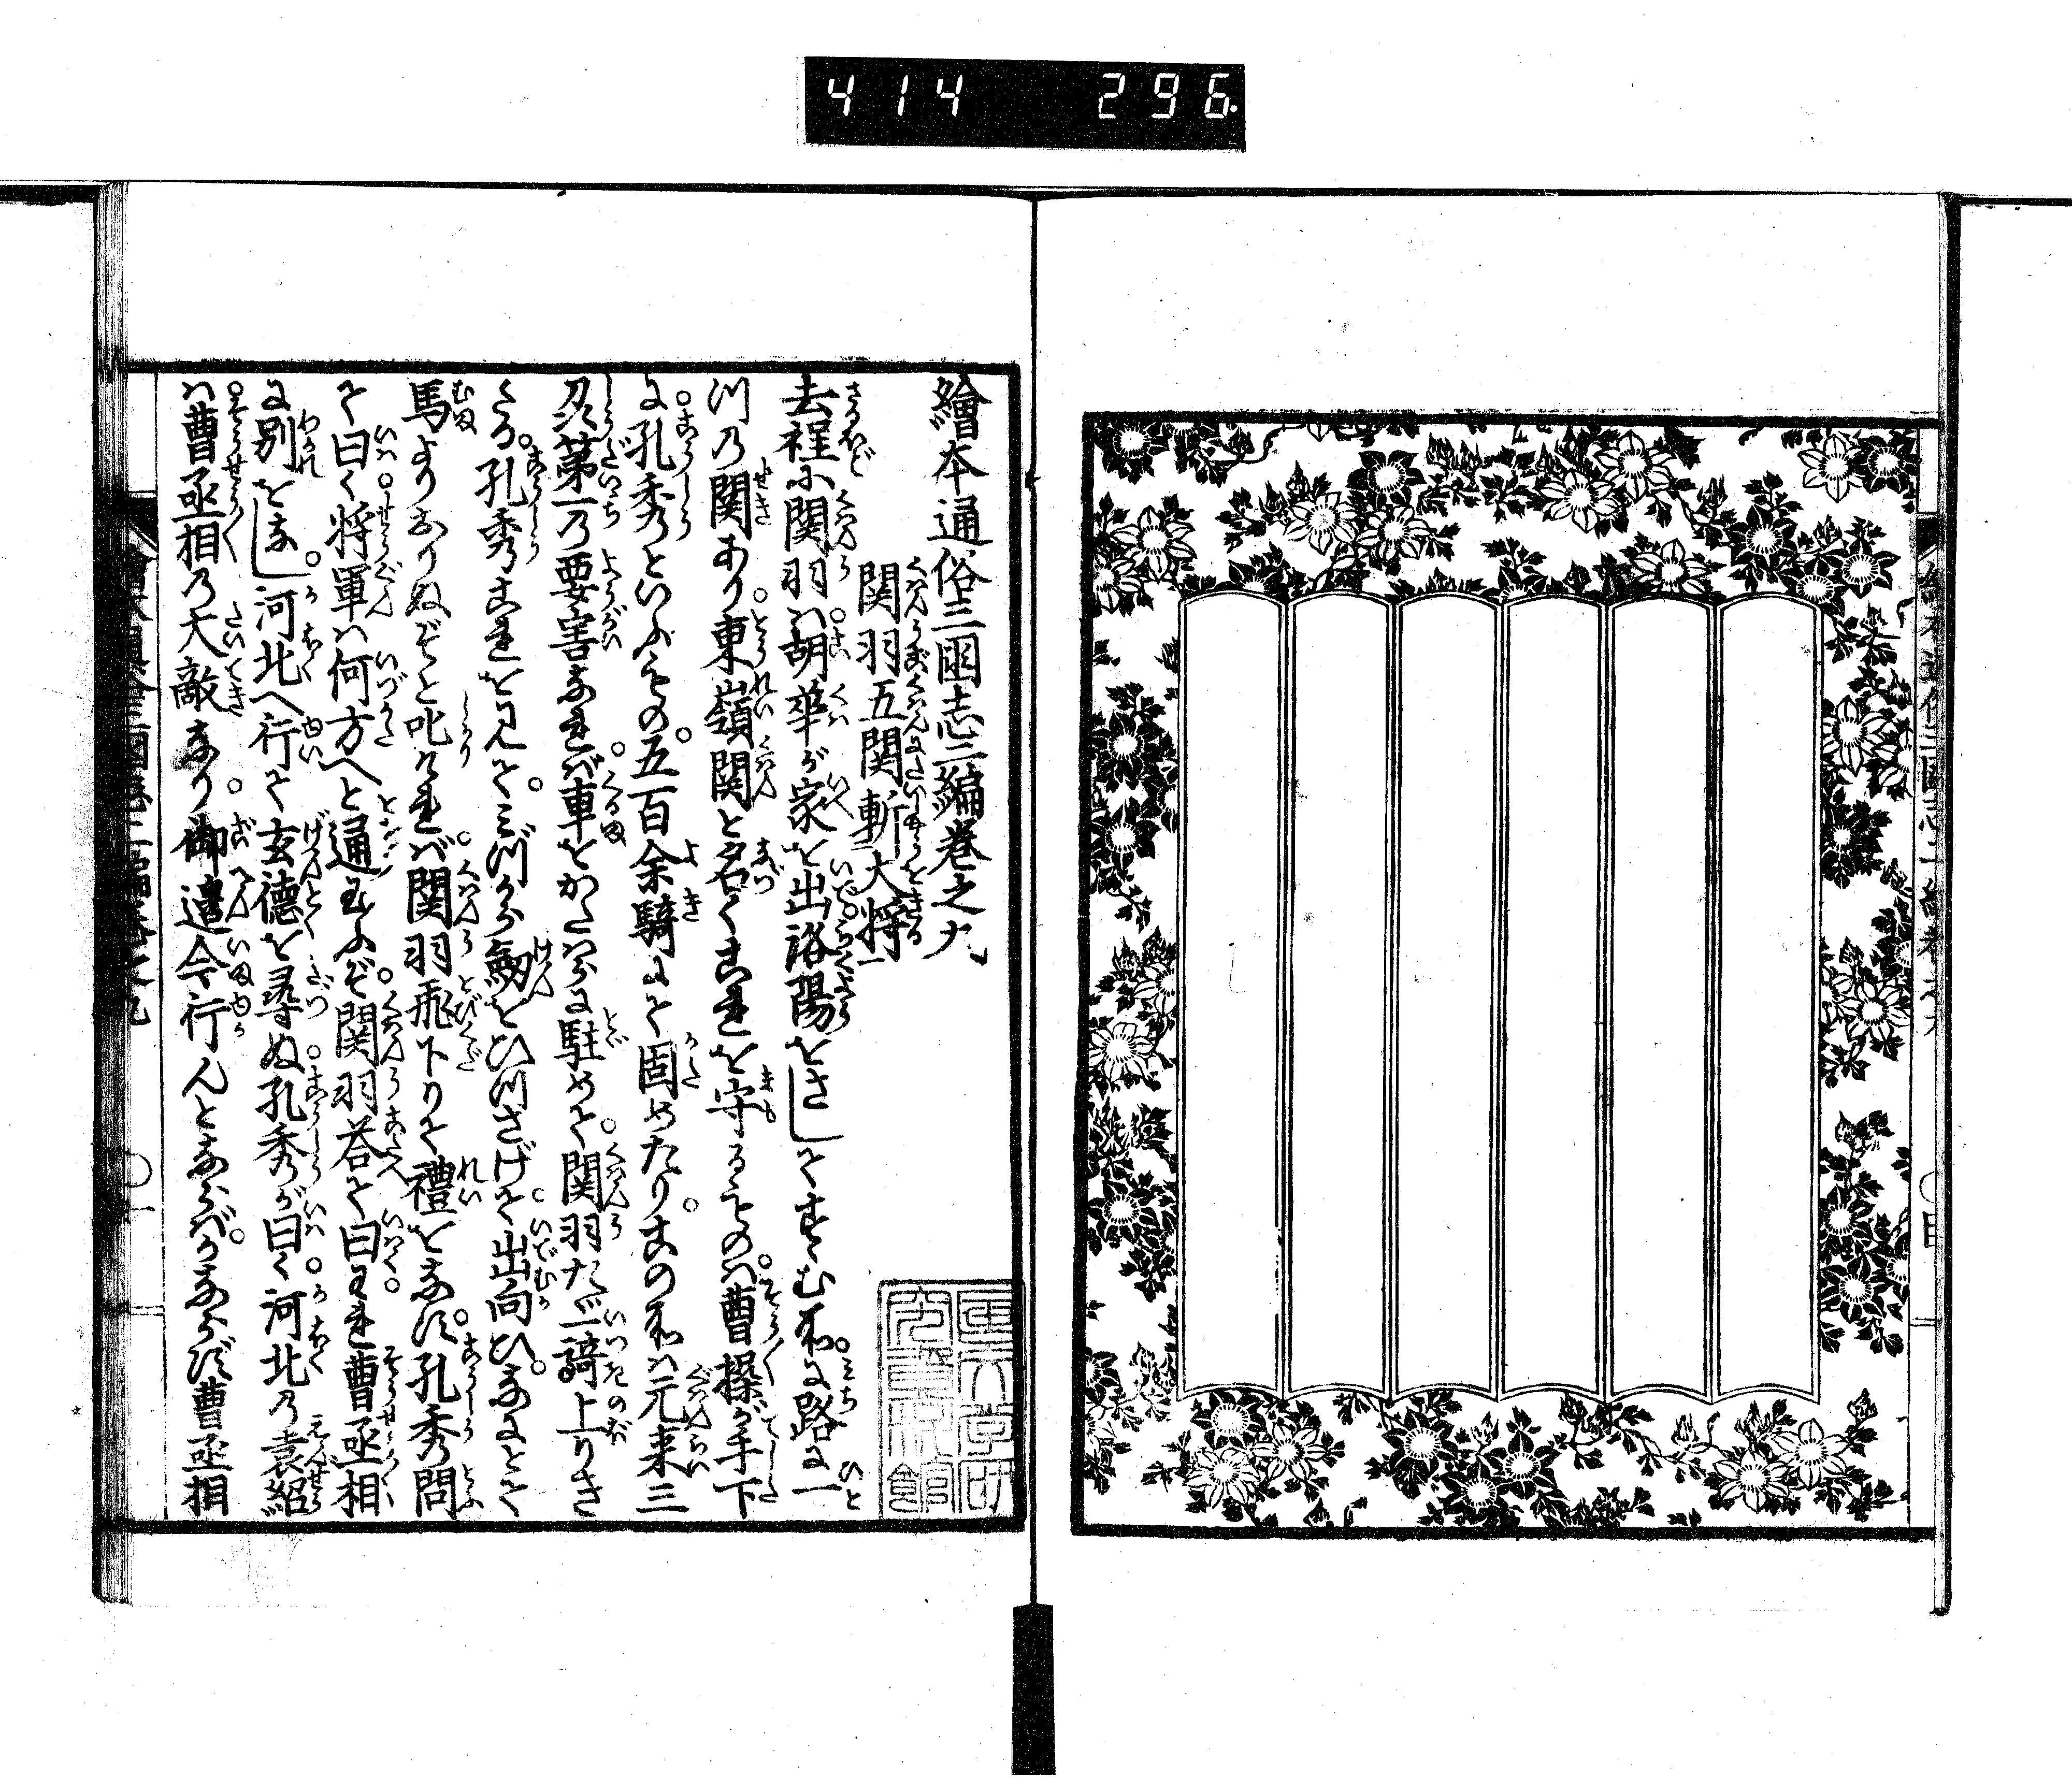 414 296
繪本通俗三國志二編巻之九
関羽五関斬大将
去程に関羽ハ胡華が家を出洛陽をさしてすゝむ所に路に一
つの関あり東嶺関と名くこれを守るものハ曹操が手下
に孔秀といふもの五百余騎にて固めたりこの所ハ元来三
及第一の要害なれバ車をかたハらに駐めて関羽たゞ一騎上りき
たる孔秀これを見てミづから劔をひつさげて出向ひなにとて
馬よりおりぬぞと叱けれバ関羽飛下りて禮をなす孔秀問
て曰く将軍ハ何方へと通玉ふぞ関羽答て曰われ曹丞相
に別をなし河北へ行て玄徳を尋ぬ孔秀が曰く河北の袁紹
ハ曹丞相の大敵なり御邉今行んとならバかならず曹丞相